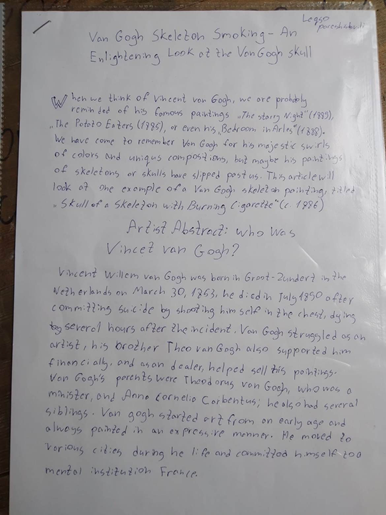 Van Gogh Skeleton Smoking – An
Enlightening Look at the Van Gogh skull
When we think of Vincent van Gogh, we are probably
reminded of his famous paintings „The starry Night" (1889),
„The Potato Eaters (1885), or even his „Bedroom in Arles" (1888).
We have come to remember Van Gogh for his majestic swirls
of colors and unique compositions, but maybe his paintings
of skeletons or skulls have slipped past us. This article will
look at one example of a Van Gogh skeleton painting, titled
„Skull of a Skeleton with Burning Cigarette" (c. 1886)
Artist Abstract: Who Was
Vincet van Gogh?
Vincent Willem van Gogh was born in Groot-Zundert in the
Netherlands on March 30, 1853, he died in July 1890 after
committing suicide by shooting himself in the chest, dying
by several hours after the incident. Van Gogh struggled as an
artist, his brother Theo van Gogh also supported him
financially, and as an dealer, helped sell his paintings.
Van Gogh's parents were Theodorus van Gogh, who was a
minister, and Anna Cornelia Carbentus; he also had several
siblings. Van gogh started art from an early age and
always painted in an expressive manner. He moved to
various cities during he life and committed himself to a
mental institution France.